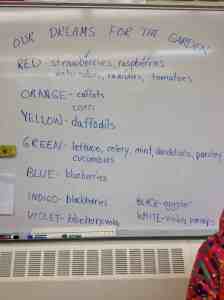 OUR DREAMS FOR THE GARDEN
RED - strawberries, raspberries
radishes, tomatoes
ORANGE - carrots
corn
YELLOW - daffodils
GREEN - lettuce, celery, mint, dandelions, parsley
cucumbers
BLUE - blueberries
INDIGO - blackberries
VIOLET -
BLACK -
WHITE -